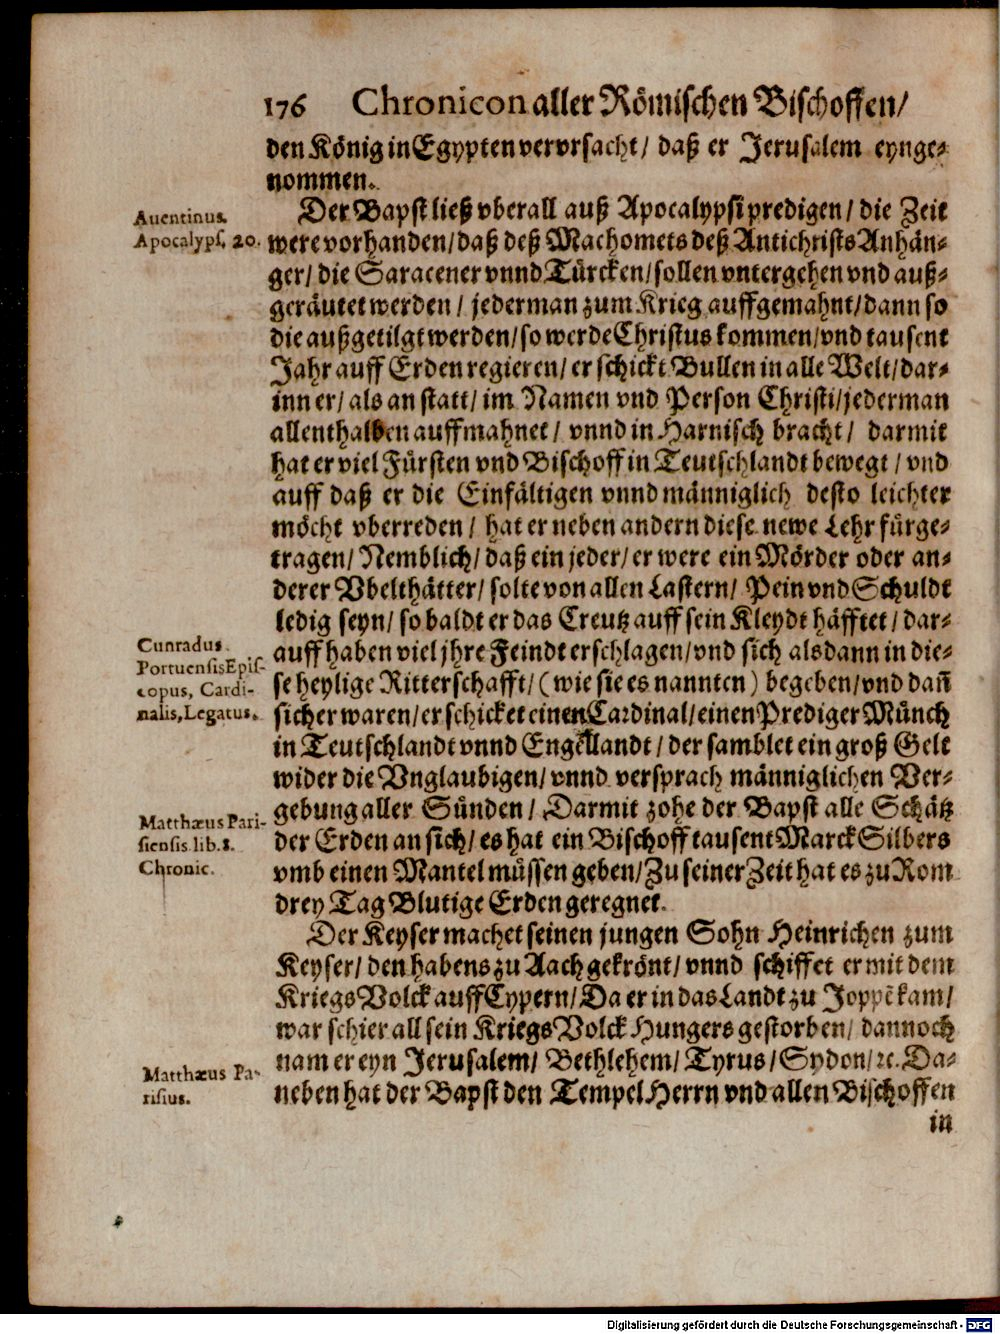 176 Chronicon aller Römischen Bischoffen/
den König in Egypten verursacht/ daß er Jerusalem eynge-
nommen.
Aventinus.
Apocalyps. 20.
Der Bapst ließ vberall auß Apocalypsi predigen/ die Zeit
were vorhanden/ daß deß Machomets deß Antichrists Anhän-
ger/ die Saracener vnnd Türcken/ sollen vntergehen vnd auß-
geräutet werden/ jederman zum Krieg auffgemahnt/ dann so
die außgetilgt werden/ so werde Christus kommen/ vnd tausent
Jahr auff Erden regieren/ er schickt Bullen in alle Welt/ dar-
inn er/ als an statt/ im Namen vnd Person Christi/ jederman
allenthalben auffmahnet/ vnnd in Harnisch bracht/ darmit
hat er viel Fürsten vnd Bischoff in Teutschlandt bewegt/ vnd
auff daß er die Einfältigen vnnd männiglich desto leichter
möcht vberreden/ hat er neben andern diese newe Lehr fürge-
tragen/ Nemblich/ daß ein jeder/ er were ein Mörder oder an-
derer Vbelthätter/ solte von allen Lastern/ Pein vnd Schuldt
ledig seyn/ so baldt er das Creutz auff sein Kleydt häfftet/ dar-
Cunradus.
Portuensis Epis-
copus, Cardi-
nalis, Legatus.
auff haben viel jhre Feindt erschlagen/ vnd sich alsdann in die-
se heylige Ritterschafft/ (wie sie es nannten) begeben/ vnd dañ
sicher waren/ er schicket einen Cardinal/ einen Prediger Münch
in Teutschlandt vnnd Engellandt/ der samblet ein groß Gelt
wider die Vnglaubigen/ vnnd versprach männiglichen Ver-
gebung aller Sünden/ Darmit zohe der Bapst alle Schätz
Matthæus Pari-
siensis lib. 8.
Chronic.
der Erden an sich/ es hat ein Bischoff tausent Marck Silbers
vmb einen Mantel müssen geben/ Zu seiner Zeit hat es zu Rom
drey Tag Blutige Erden geregnet.
Der Keyser machet seinen jungen Sohn Heinrichen zum
Keyser/ den habens zu Aach gekrönt/ vnnd schiffet er mit dem
KriegsVolck auff Cypern/ Da er in das Landt zu Joppē kam/
war schier all sein KriegsVolck Hungers gestorben/ dannoch
nam er eyn Jerusalem/ Bethlehem/ Tyrus/ Sydon/ ꝛc. Da-
Matthæus Pa-
risius.
neben hat der Bapst den Tempel Herrn vnd allen Bischoffen
in
Digitalisierung gefördert durch die Deutsche Forschungsgemeinschaft - DFG